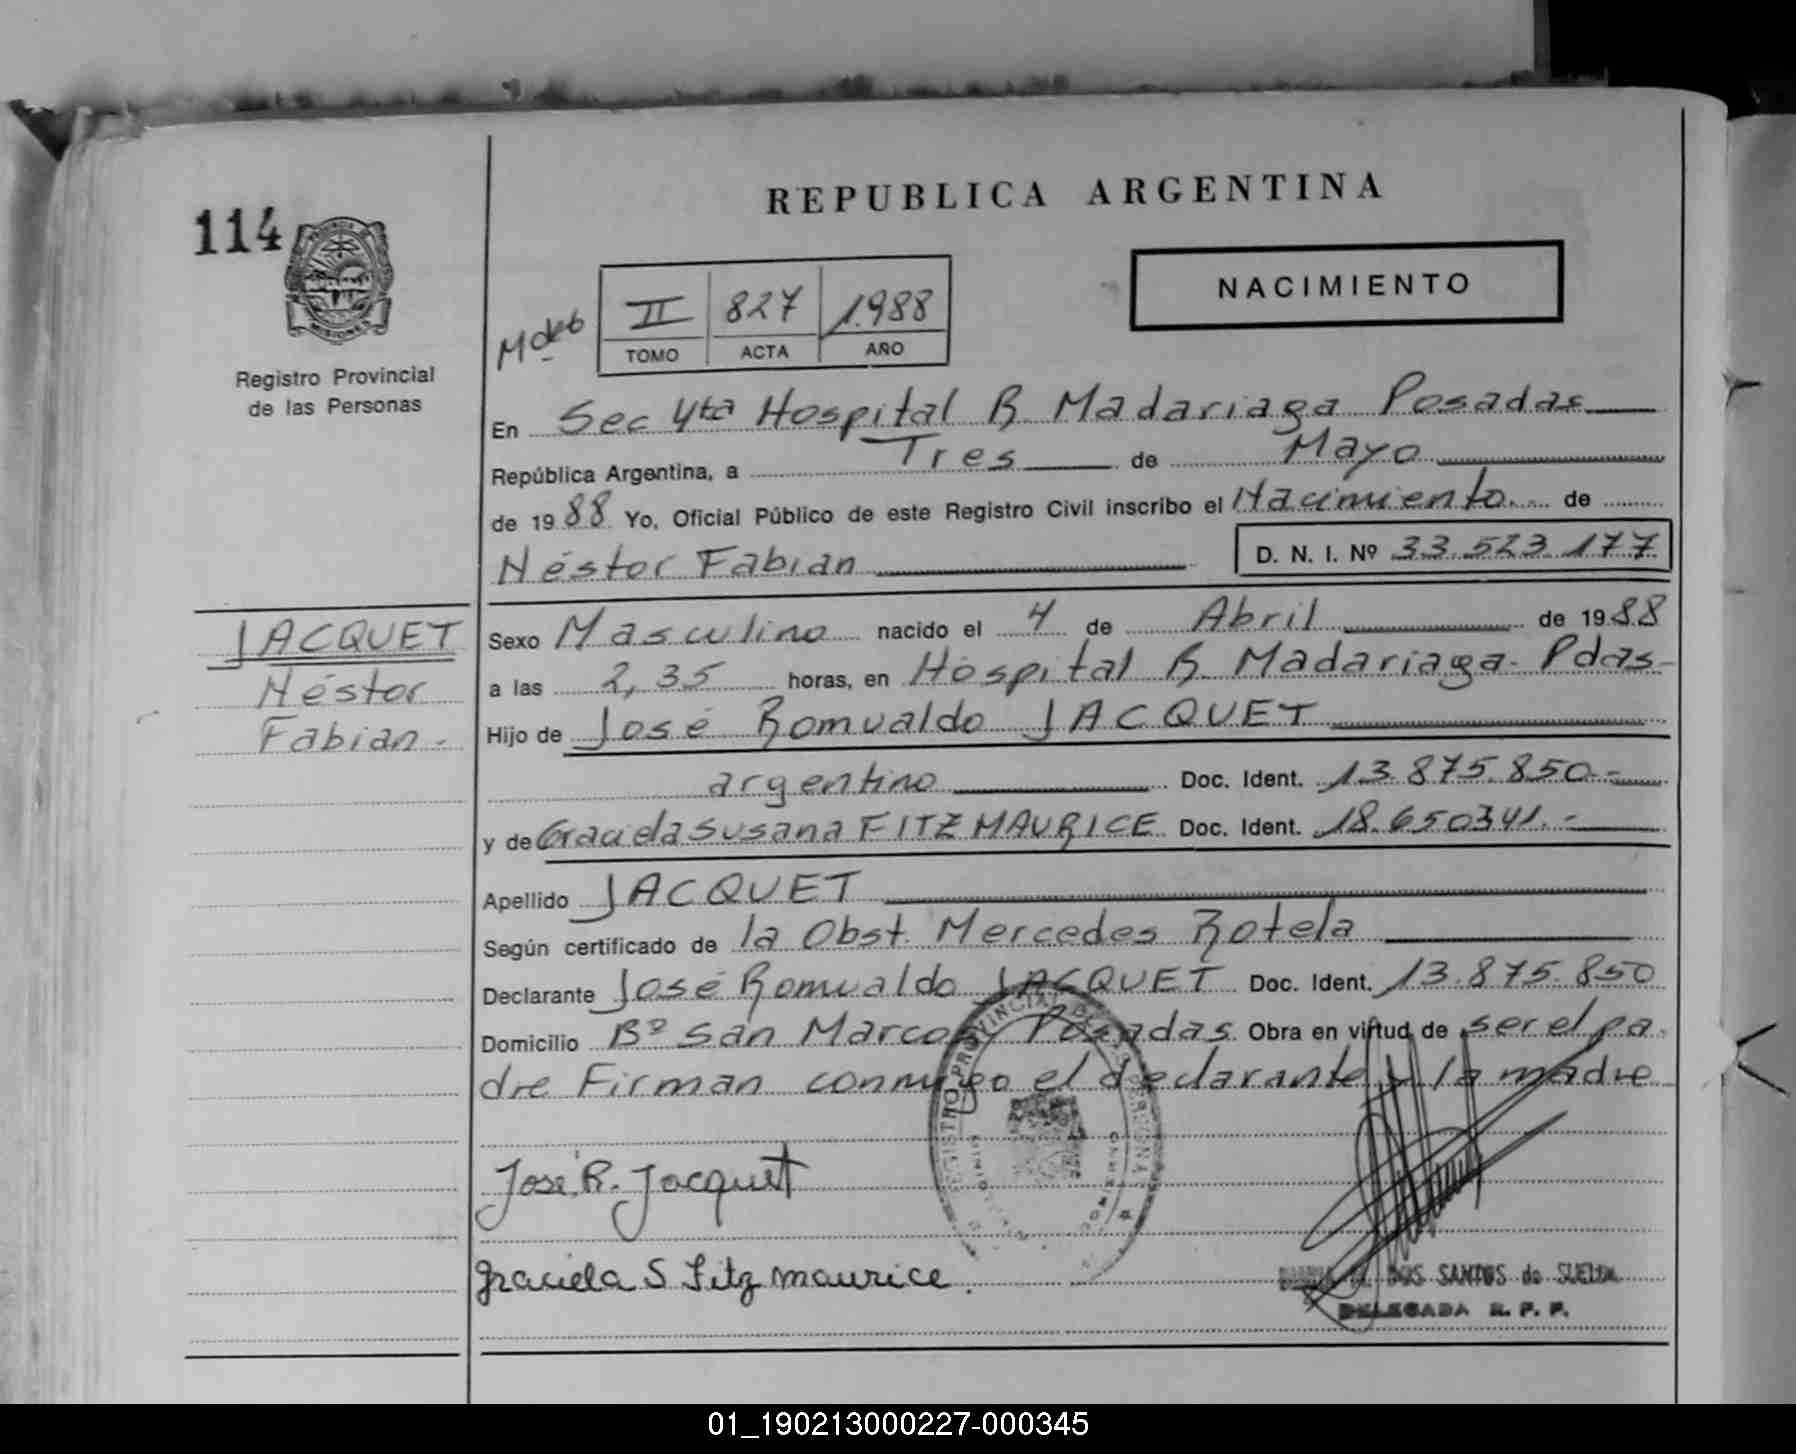 REPUBLICA ARGENTINA
114
NACIMIENTO
II 827 1.988
TOMO ACTA AÑO
Registro Provincial
de las Personas
MISIONES
En Sec 4ta Hospital R. Madariaga Posadas
República Argentina, a Tres de Mayo
de 1988 Yo, Oficial Público de este Registro Civil inscribo el Nacimiento de
Néstor Fabian D. N. I. Nº 33.523.177
JACQUET
Néstor
Fabian.-
Sexo Masculino nacido el 4 de Abril de 1988
a las 2,35 horas, en Hospital R. Madariaga- Pdas-
Hijo de José Romualdo JACQUET
argentino Doc. Ident. 13.875.850.-
y de Graciela Susana FITZ MAURICE Doc. Ident. 18.650341.-
Apellido JACQUET
Según certificado de la Obst. Mercedes Rotela
Declarante José Romualdo JACQUET Doc. Ident. 13.875.850
Domicilio Bº San Marcos Posadas Obra en virtud de ser el pa
dre Firman conmigo el declarante y la madre
José R. Jacquet
Graciela S Fitz maurice.
DOS SANTOS de SUELDA
DELEGADA R. P. P.
01_190213000227-000345